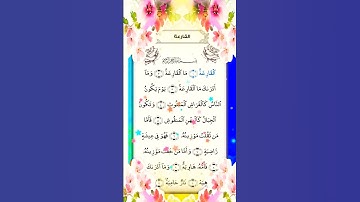 القارعة
بسم الله الرحمن الرحيم
ٱلْقَارِعَةُ ۝ مَا ٱلْقَارِعَةُ ۝ وَمَآ
أَدْرَىٰكَ مَا ٱلْقَارِعَةُ ۝ يَوْمَ يَكُونُ
ٱلنَّاسُ كَٱلْفَرَاشِ ٱلْمَبْثُوثِ ۝ وَتَكُونُ
ٱلْجِبَالُ كَٱلْعِهْنِ ٱلْمَنفُوشِ ۝ فَأَمَّا
مَن ثَقُلَتْ مَوَٰزِينُهُۥ ۝ فَهُوَ فِى عِيشَةٍ
رَّاضِيَةٍ ۝ وَأَمَّا مَنْ خَفَّتْ مَوَٰزِينُهُۥ
۝ فَأُمُّهُۥ هَاوِيَةٌ ۝ وَمَآ أَدْرَىٰكَ
مَا هِيَهْ ۝ نَارٌ حَامِيَةٌۢ ۝